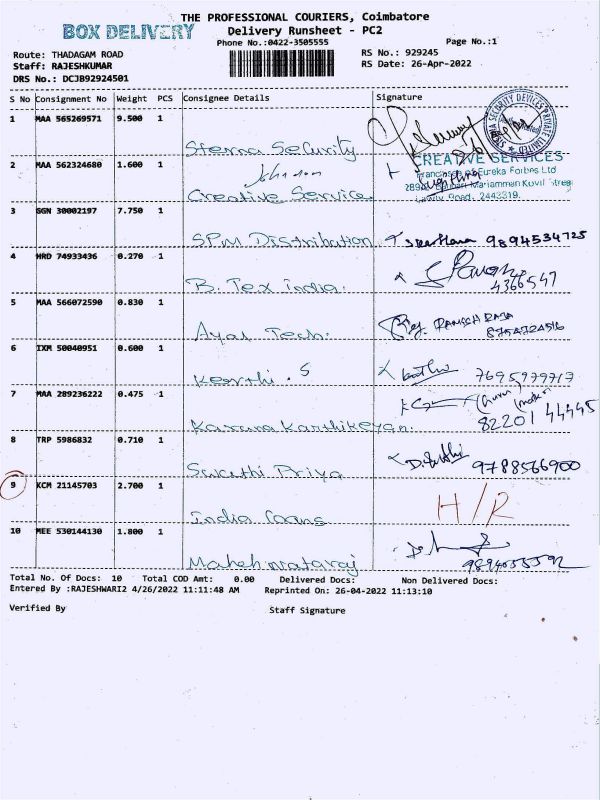 THE PROFESSIONAL COURIERS, Coimbatore
BOX DELIVERY
Delivery Runsheet - PC2
Phone No.:0422-3505555
Page No.:1
Route: THADAGAM ROAD
RS No.: 929245
Staff: RAJESHKUMAR
RS Date: 26-Apr-2022
DRS No.: DCJB92924501
S No Consignment No Weight PCS Consignee Details Signature
1 MAA 565269571 9.500 1
Sterna Security
SECURITY DEVICES PRIVATE LIMITED
2 MAA 562324680 1.600 1
Creative Service
CREATIVE SERVICES
Franchisee of Eureka Forbes Ltd
Mariamman Kovil Street
Lawly Road. 2443319.
3 SGN 30002197 7.750 1
SPM Distribution 9894534725
4 HRD 74933436 0.270 1
B. Tex India. 4366547
5 MAA 566072590 0.830 1
Ayal Tech. 8754724516
6 IXM 50040951 0.600 1
Keerthi . S 7695979717
7 MAA 289236222 0.475 1
Karuna Karthikeyan. 82201 44445
8 TRP 5986832 0.710 1
Sakthi Priya 9788566900
9 KCM 21145703 2.700 1
India Loans H/R
10 MEE 530144130 1.800 1
Mahehwataraj
Total No. Of Docs: 10 Total COD Amt: 0.00 Delivered Docs: Non Delivered Docs:
Entered By :RAJESHWARI2 4/26/2022 11:11:48 AM Reprinted On: 26-04-2022 11:13:10
Verified By Staff Signature